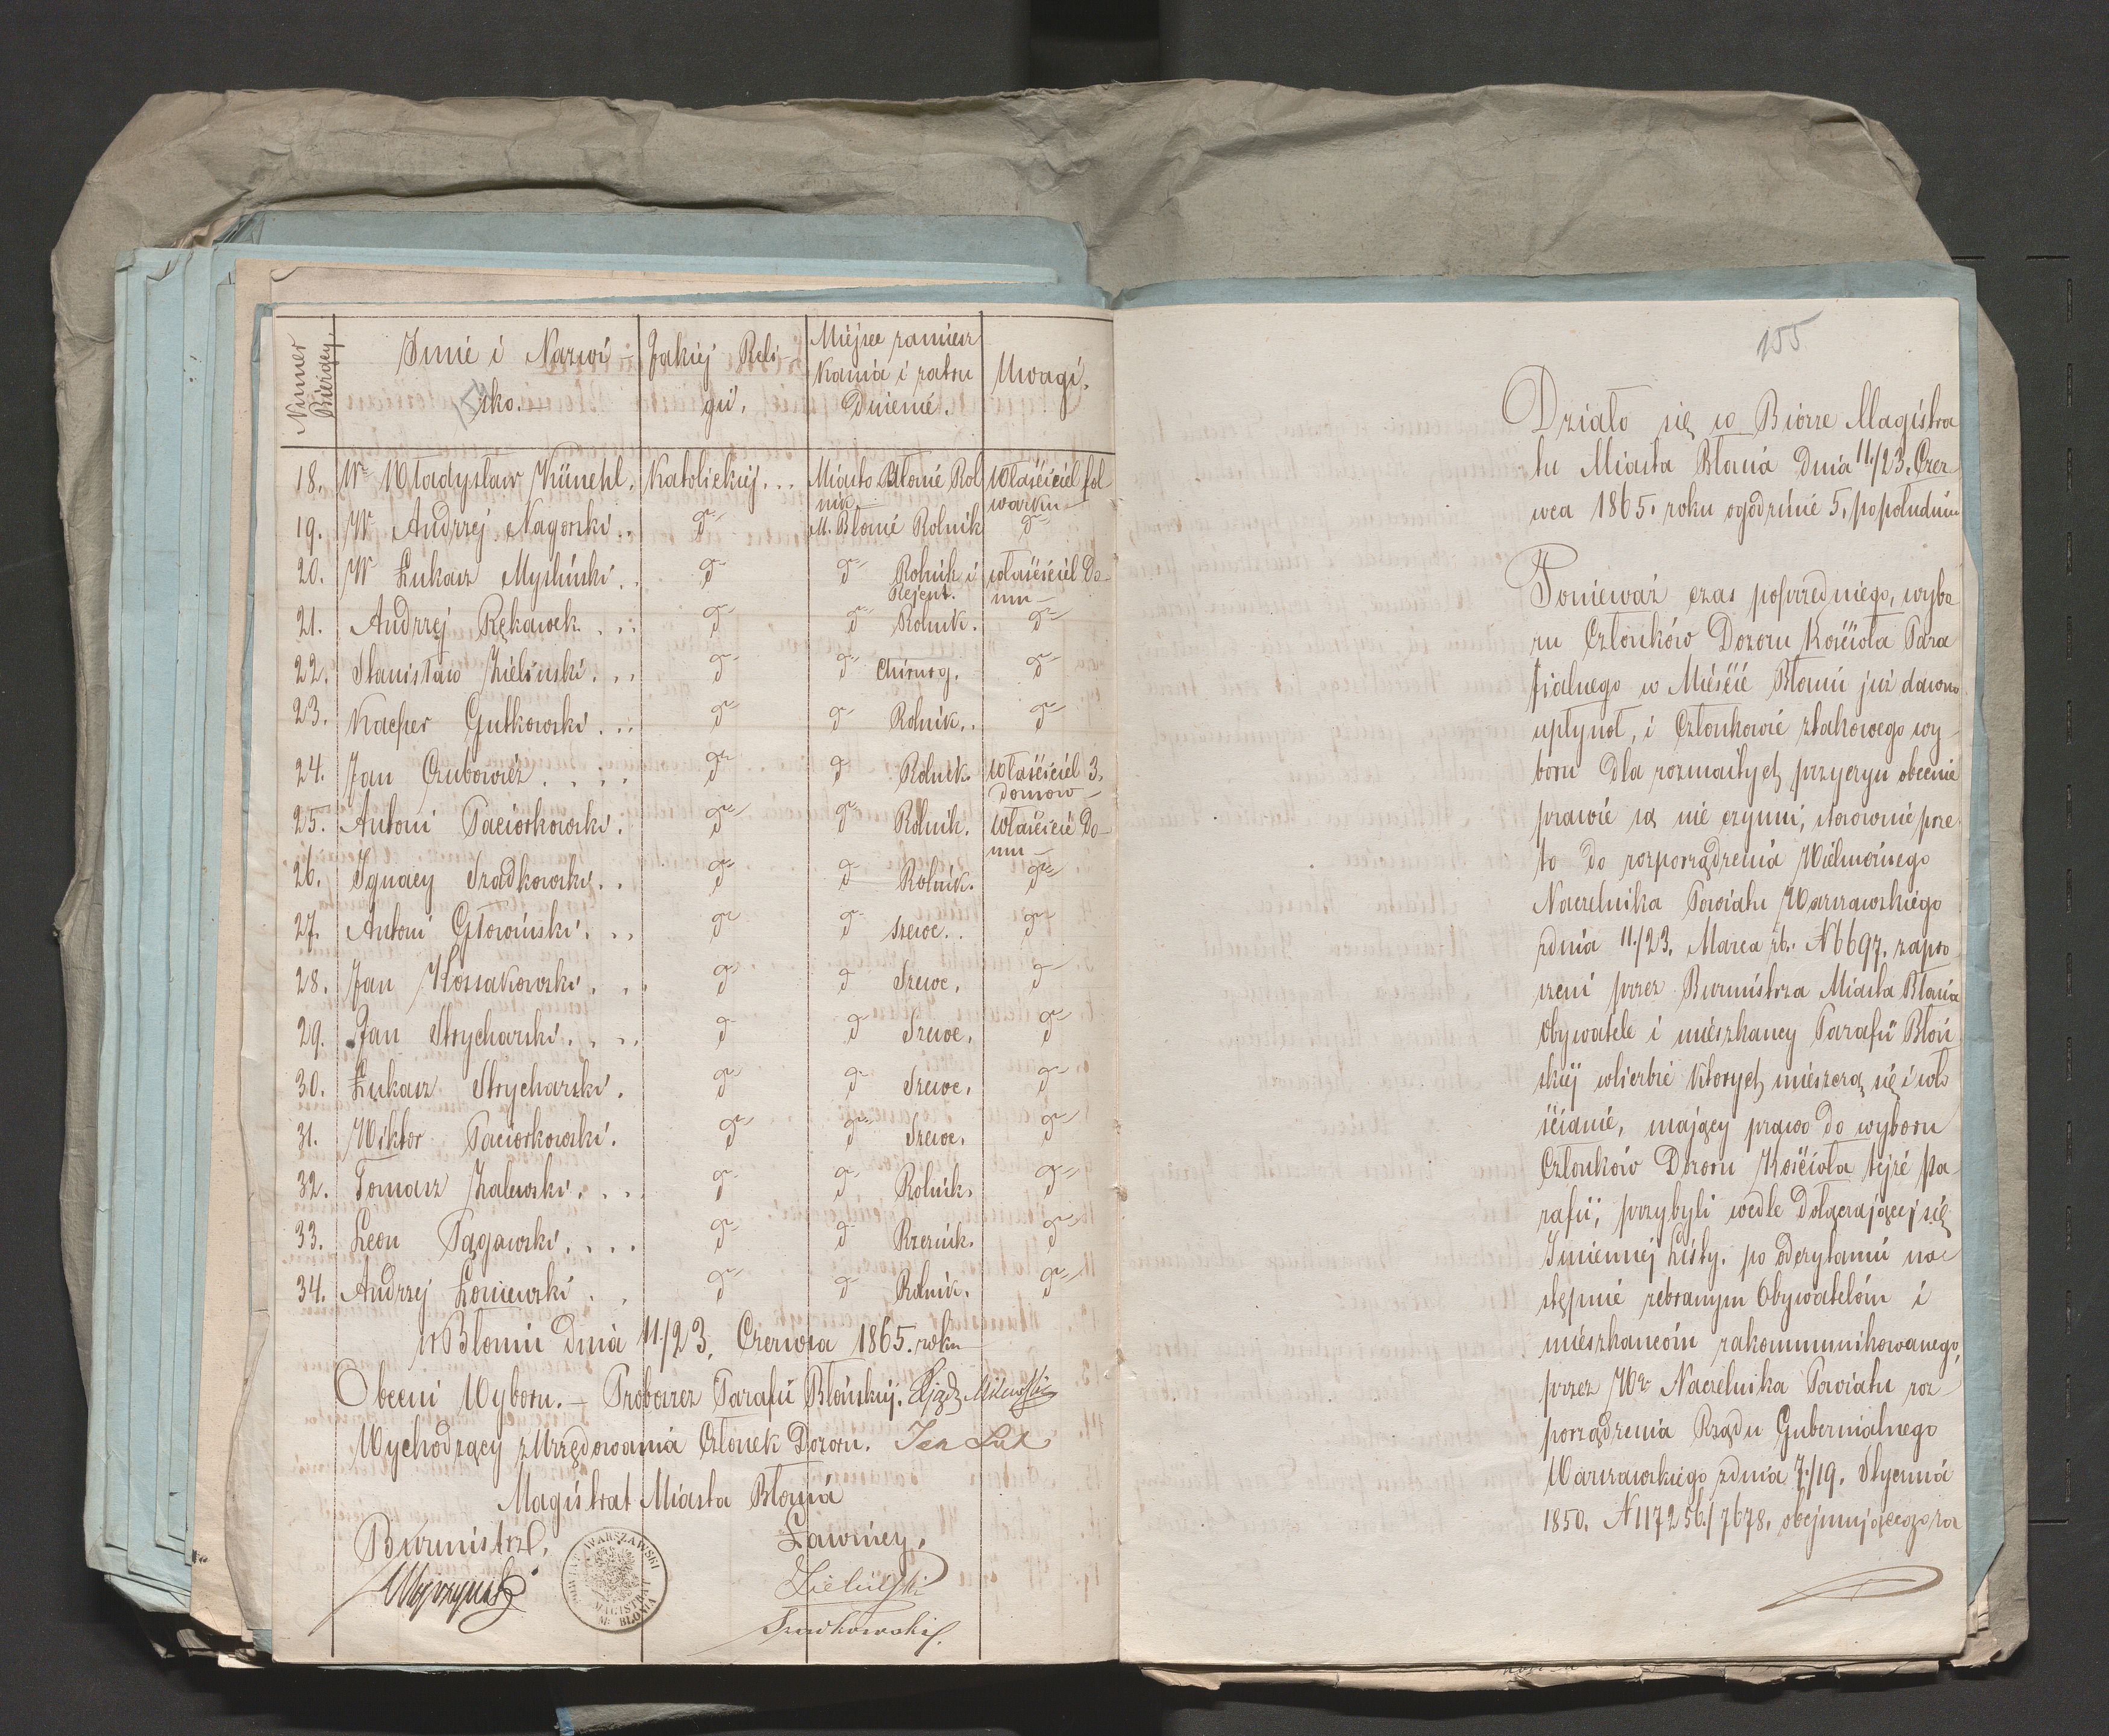 Numer Bieżący.
Imie i Nazwi-
sko.—
Jakiej Reli-
gii.
Miejsce zamiesz
kania i zatru
dnienie.
Uwagi.
18. Wny Władysław Künehl. Katolickiej... Miasto Błonie Rol Właściciel fol
nik— warku—
19. W. Andrzej Nagorski.. do M. Błonie Rolnik do
20. W Łukasz Myśliński.. do do Rolnik i właściciel Do-
Rejent. mu—
21. Andrzej Rękawek... do do Rolnik. do
22. Stanisław Zieliński... do do Chirurg. do
23. Kacper Gutkowski... do do Rolnik.. do
24. Jan Czubowicz.... do do Rolnik. Właściciel 3.
domow—
25. Antoni Paciorkowski. do do Rolnik. Właściciel Do-
mu—
26. Ignacy Sradkowski.. do do Rolnik. do
27. Antoni Głowiński... do do szewc.. do
28. Jan Kossakowski... do do Szewc. do
29. Jan Strycharski.... do do Szewc. do
30. Łukasz Strycharski. do do Szewc. do
31. Wiktor Paciorkowski. do do Szewc. do
32. Tomasz Zalewski.... do do Rolnik. do
33. Leon Pągowski.... do do Rzeznik. do
34. Andrzej Łoniewski.. do do Rolnik. do
w Błoniu dnia 11./23. Czerwca 1865. roku
Obecni Wyboru.— Proboszcz Parafii Błońskiej.
Wychodzący z Urzędowania Członek Dozoru.
Magistrat Miasta Błonia
Burmistrz. Ławnicy.
POWIAT WARSZAWSKI
MAGISTRAT
M: BŁONIA
Zieliński
Sradkowski.
155
Działo się w Biórze Magistra
tu Miasta Błonia dnia 11./23. Czer
wca 1865. roku ogodzinie 5. popołudniu
Ponieważ czas poprzedniego, wybo
ru Członków Dozoru Kościoła Para
fialnego w Mieście Błoniu już dawno
upłynoł, i Członkowie ztakowego wy-
boru dla rozmaitych przyczyn obecnie
prawie są nie czynni, stosownie prze
to do rozporządzenia Wielmożnego
Naczelnika Powiatu Warszawskiego
zdnia 11./23. Marca rb. N 6697. zapro
szeni przez Burmistrza Miasta Błonia
Obywatele i mieszkancy Parafii Błoń
skiej wliczbie ktorych mieszczą się i wło
ścianie, mający prawo do wyboru
Członków Dozoru Kościoła tejże Pa-
rafii, przybyli wedle dołączającej się
Imiennej Listy. po odczytaniu na-
stępnie zebranym Obywatelom i
mieszkancom zakommunikowanego,
przez Wgo Naczelnika Powiatu roz-
porządzenia Rządu Gubernialnego
Warszawskiego zdnia 7./19. Stycznia
1850. N 117256/7678. obejmującego za